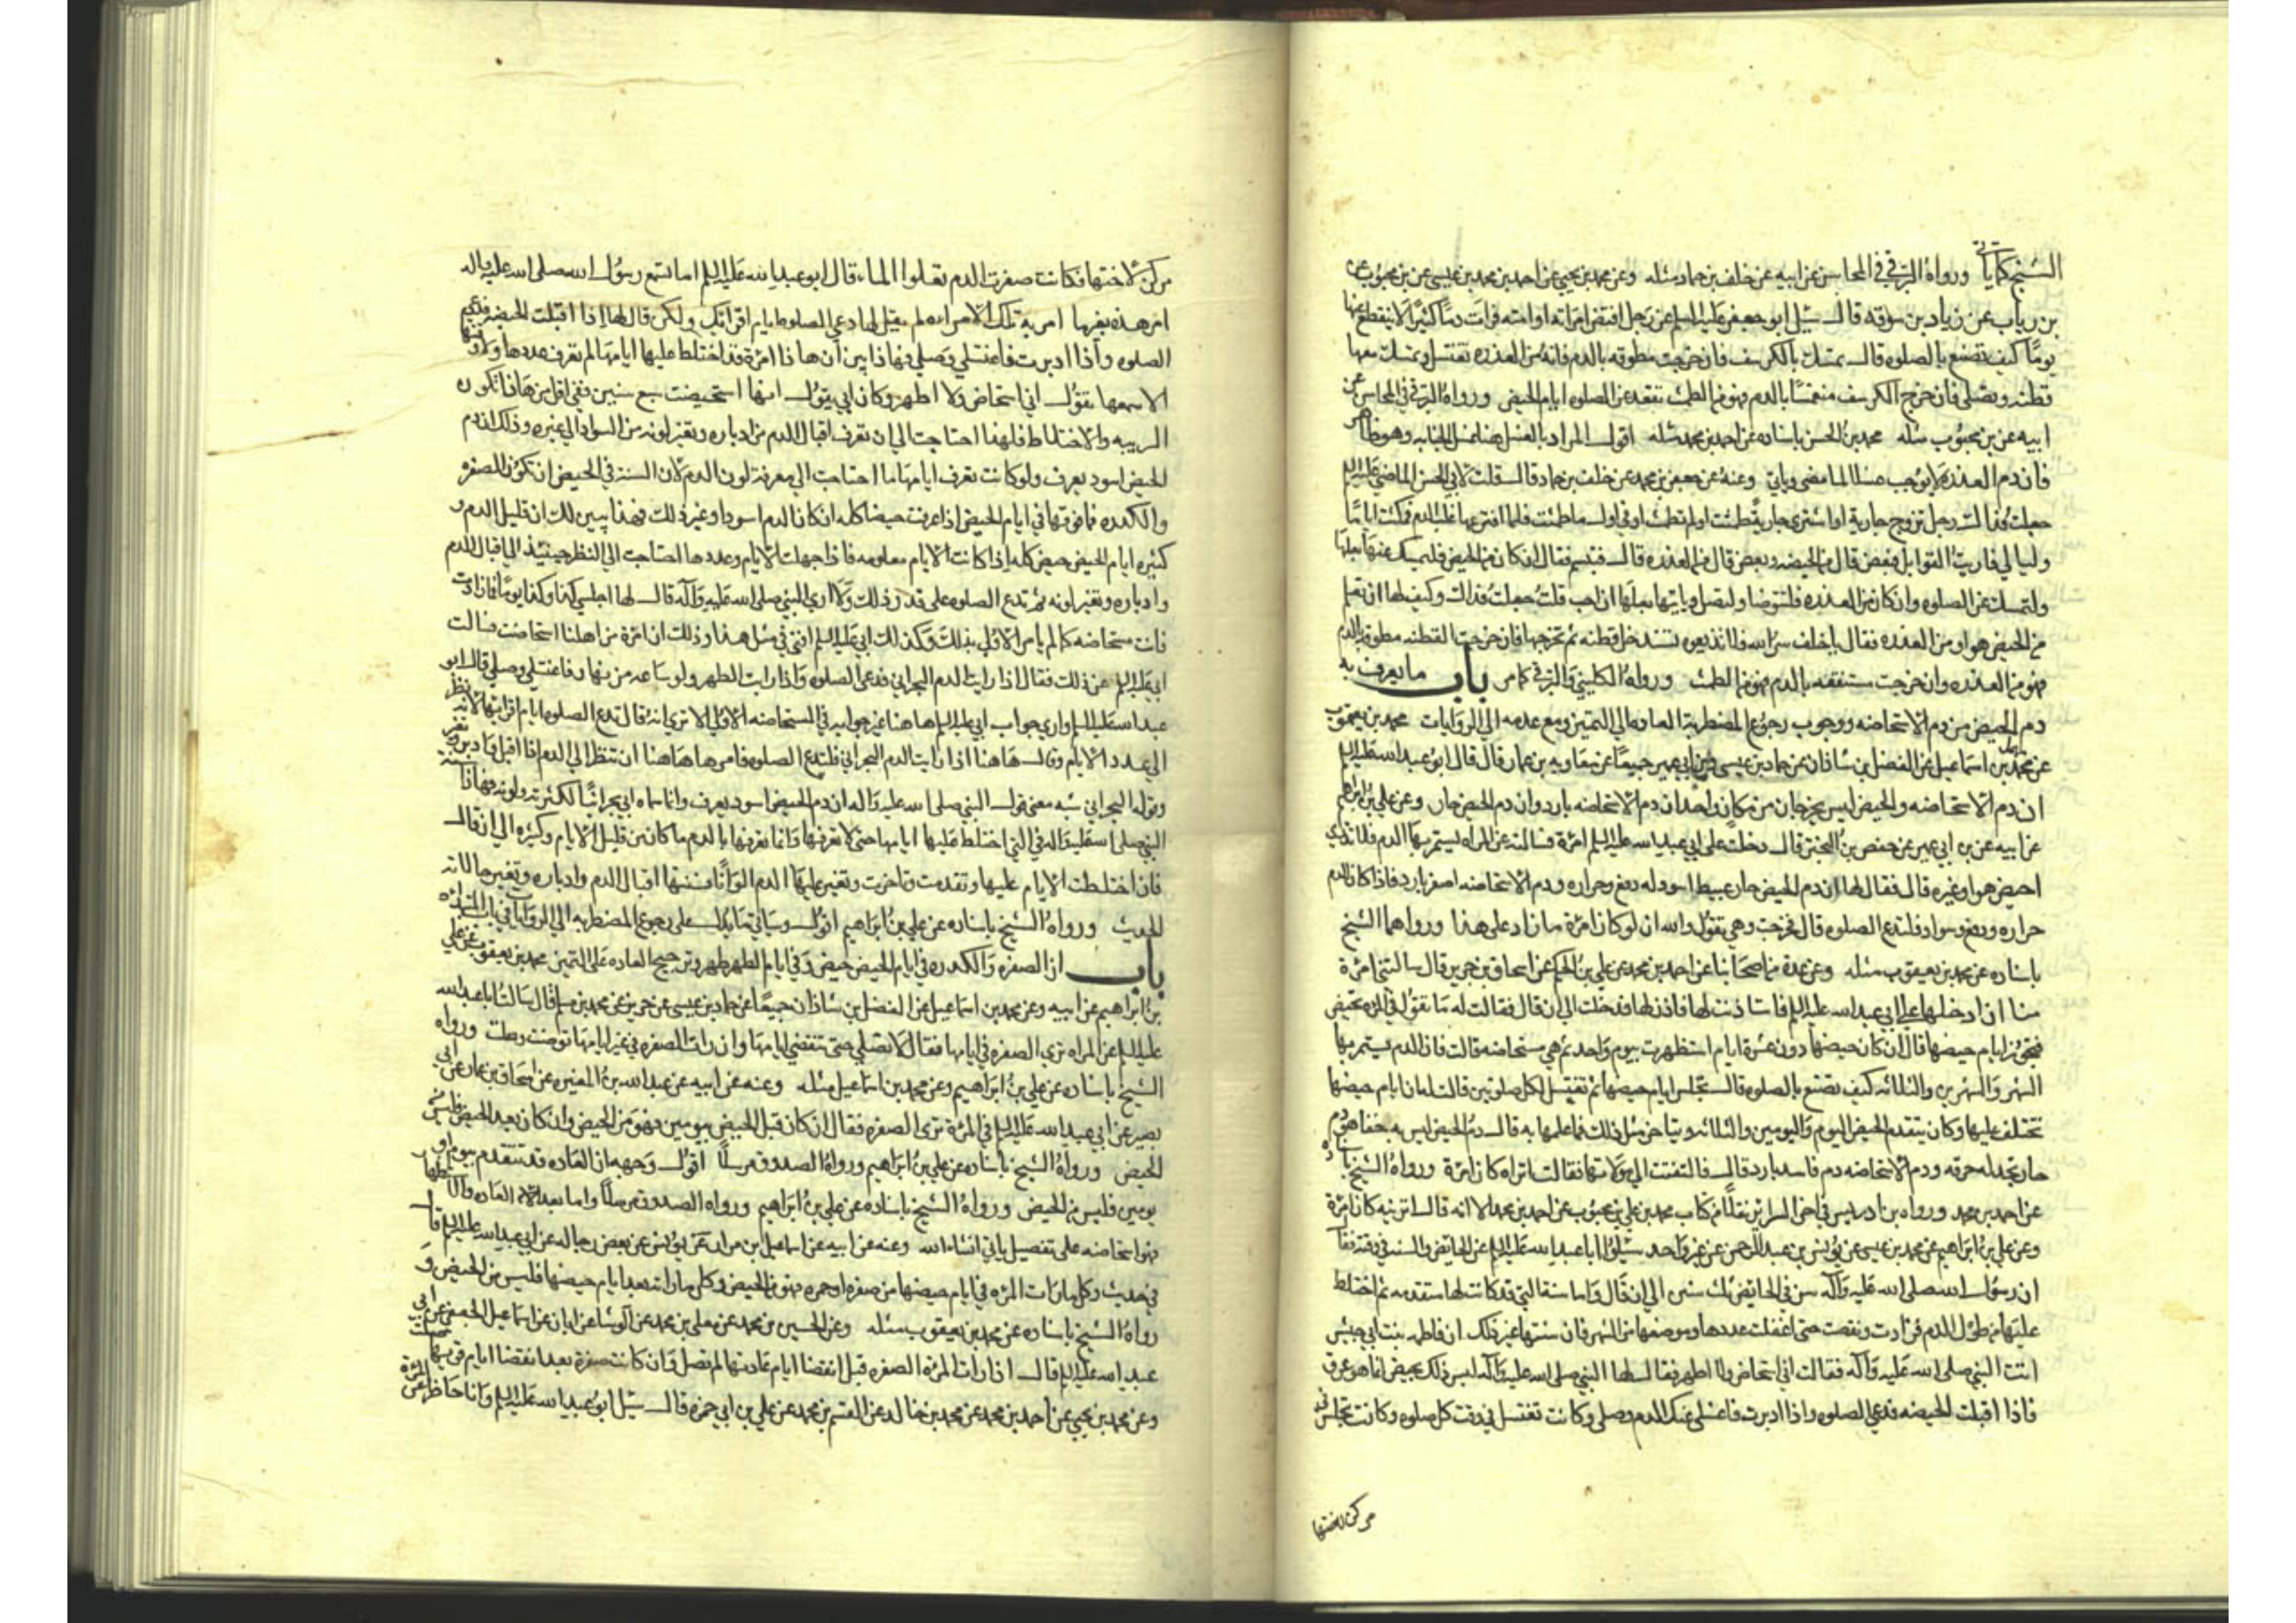 الشيخ كما ياتي ورواه البرقي في المحاسن عن ابيه عن خلف بن حماد مثله وعن محمد بن يحيى عن احمد بن محمد بن عيسى عن بن محبوب عن
بن رياب عن زياد بن سوقه قال سئل ابو جعفر عليه السلم عن رجل افتض امراته او امته فرات دمًا كثيرًا لا ينقطع عنها
يومًا كيف تصنع بالصلوه قال تمسك بالكرسف فان خرجت مطوقه بالدم فانه من العذره تغتسل وتمسك معها
قطنه وتصلي فان خرج الكرسف منغمسًا بالدم فهو من الطمث تقعد عن الصلوه ايام الحيض ورواه البرقي في المحاسن عن
ابيه عن بن محبوب مثله محمد بن الحسن باسناده عن احمد بن محمد مثله اقول المراد بالغسل هنا غسل الجنابه وهو ظاهر
فان دم العذره لا يوجب غسلا لما مضى وياتي وعنه عن جعفر بن محمد عن خلف بن حماد قال قلت لابي الحسن الماضي عليه السلم
جعلت فداك رجل تزوج جارية او اشترى جارية طمثت او لم تطمث او في اول ما طمثت فلما افترعها غلب الدم فمكث ايامًا
وليالي فاريت القوابل فبعض قال من الحيضه وبعض قال من العذره قال فتبسم فقال ان كان من الحيض فليمسك عنها بعلها
ولتمسك عن الصلوه وان كان من العذره فلتتوضا ولتصل وياتيها بعلها ان احب قلت جعلت فداك وكيف لها ان تعلم
من الحيض هو او من العذره فقال يا خلف سر الله فلا تذيعوه تستدخل قطنه ثم تخرجها فان خرجت القطنه مطوقه بالدم
فهو من العذره وان خرجت مستنقعه بالدم فهو من الطمث ورواه الكليني والبرقي كما مر باب ما يعرف به
دم الحيض من دم الاستحاضه ووجوب رجوع المضطربة العاده الى التمييز ومع عدمه الى الروايات محمد بن يعقوب
عن محمد بن اسماعيل عن الفضل بن شاذان عن حماد بن عيسى وبن ابي عمير جميعًا عن معاويه بن عمار قال قال ابو عبد الله عليه السلم
ان دم الاستحاضه والحيض ليس يخرجان من مكان واحد ان دم الاستحاضه بارد وان دم الحيض حار وعن علي بن ابراهيم
عن ابيه عن بن ابي عمير عن حفص بن البختري قال دخلت على ابي عبد الله عليه السلم امرة فسالته عن المراه يستمر بها الدم فلا تدري
احيض هو او غيره قال فقال لها ان دم الحيض حار عبيط اسود له دفع وحراره ودم الاستحاضه اصفر بارد فاذا كان للدم
حراره ودفع وسواد فلتدع الصلوه قال فخرجت وهي تقول والله ان لو كان امرة ما زاد على هذا ورواهما الشيخ
باسناده عن محمد بن يعقوب مثله وعن عدة من اصحابنا عن احمد بن محمد عن علي بن الحكم عن اسحاق بن جرير قال سالتني امرة
منا ان ادخلها على ابي عبد الله عليه السلم فاستاذنت لها فاذن لها فدخلت الى ان قال فقالت له ما تقول في المراه تحيض
فتجوز ايام حيضها قال ان كان حيضها دون عشرة ايام استظهرت بيوم واحد ثم هي مستحاضه قالت فان الدم يستمر بها
الشهر والشهرين والثلاثه كيف تصنع بالصلوه قال تجلس ايام حيضها ثم تغتسل لكل صلوتين قالت له ان ايام حيضها
تختلف عليها وكان يتقدم الحيض اليوم واليومين والثلاثه ويتاخر مثل ذلك فما علمها به قال دم الحيض ليس به خفا هو دم
حار تجد له حرقه ودم الاستحاضه دم فاسد بارد قال فالتفتت الى مولاتها فقالت اتراه كان امرة ورواه الشيخ باسناده
عن احمد بن محمد ورواه بن ادريس في اخر السراير نقلًا من كتاب محمد بن علي بن محبوب عن احمد بن محمد الا انه قال اترينه كان امرة
وعن علي بن ابراهيم عن محمد بن عيسى عن يونس بن عبد الرحمن عن غير واحد سئلوا ابا عبد الله عليه السلم عن الحايض والسنه في وقته فقال
ان رسول الله صلى الله عليه وآله سن في الحايض ثلث سنن الى ان قال واما سنة التي قد كانت لها متقدمه ثم اختلط
عليها من طول الدم فزادت ونقصت حتى اغفلت عددها وموضعها من الشهر فان سنتها غير ذلك ان فاطمه بنت ابي حبيش
اتت النبي صلى الله عليه وآله فقالت اني استحاض ولا اطهر فقال لها النبي صلى الله عليه وآله ليس ذلك بحيض انما هو عرق
فاذا اقبلت الحيضه فدعي الصلوه واذا ادبرت فاغسلي عنك الدم وصلي وكانت تغتسل في وقت كل صلوه وكانت تجلس في
مركن لاختها
مركن لاختها فكانت صفرت الدم تعلوا الماء قال ابو عبد الله عليه السلم اما تسمع رسول الله صلى الله عليه واله
امر هذه بغير ما امر به تلك الا تراه لم يقل لها دعي الصلوه ايام اقرائك ولكن قال لها اذا اقبلت الحيضه فدعي
الصلوه واذا ادبرت فاغتسلي وصلي فهاذا يبين ان هاذا امرة قد اختلط عليها ايامها لم تعرف عددها ولا وقتها
الا تسمعها تقول اني استحاض ولا اطهر وكان ابي يقول انها استحيضت سبع سنين ففي اقل من هاذا تكون
الريبه والاختلاط فلهذا احتاجت الى ان تعرف اقبال الدم من ادباره وتغير لونه من السواد الى غيره وذلك ان دم
الحيض اسود يعرف ولو كانت تعرف ايامها ما احتاجت الى معرفة لون الدم لان السنة في الحيض ان تكون الصفره
والكدره فما فوقها في ايام الحيض اذا عرفت حيضا كله ان كان الدم اسود او غير ذلك فهذا يبين لك ان قليل الدم و
كثيره ايام الحيض حيض كله اذا كانت الايام معلومه فاذا جهلت الايام وعددها احتاجت الى النظر حينئذ الى اقبال الدم
وادباره وتغير لونه ثم تدع الصلوه على قدر ذلك ولا ارى النبي صلى الله عليه وآله قال لها اجلسي كذا وكذا يومًا فما زادت
فانت مستحاضه كما لم يامر الاولى بذلك وكذلك ابي عليه السلم افتى في مثل هذا وذلك ان امرة من اهلنا استحاضت فسالت
ابي عليه السلم عن ذلك فقال اذا رايت الدم البحراني فدعي الصلوه واذا رايت الطهر ولو ساعه من نهار فاغتسلي وصلي قال ابو
عبد الله عليه السلم وارى جواب ابي عليه السلم هاهنا غير جوابه في المستحاضه الاولى الا ترى انه قال تدع الصلوه ايام اقرائها لانه نظر
الى عدد الايام وقال هاهنا اذا رايت الدم البحراني فلتدع الصلوه فامرها هاهنا ان تنظر الى الدم اذا اقبل وادبر وتغير
وقوله البحراني شبه معنى قول النبي صلى الله عليه وآله ان دم الحيض اسود يعرف وانما سماه ابي بحرانيًا لكثرته ولونه فهاذا سنة
النبي صلى الله عليه وآله في التي اختلط عليها ايامها حتى لا تعرفها وانما تعرفها بالدم ما كان من قليل الايام وكثيره الى ان قال
فان اختلطت الايام عليها وتقدمت وتاخرت وتغير عليها الدم الوانًا فسنتها اقبال الدم وادباره وتغير حالاته
الحديث ورواه الشيخ باسناده عن علي بن ابراهيم اقول وسياتي ما يدل على رجوع المضطربه الى الروايات
باب ان الصفره والكدره في ايام الحيض حيض وفي ايام الطهر طهر وترجيح العاده على التمييز محمد بن يعقوب عن علي
بن ابراهيم عن ابيه وعن محمد بن اسماعيل عن الفضل بن شاذان جميعًا عن حماد بن عيسى عن حريز عن محمد بن مسلم قال سالت ابا عبد الله
عليه السلم عن المراه ترى الصفره في ايامها فقال لا تصلي حتى تنقضي ايامها وان رات الصفره في غير ايامها توضت وصلت ورواه
الشيخ باسناده عن علي بن ابراهيم وعن محمد بن اسماعيل مثله وعنه عن ابيه عن عبد الله بن المغيره عن اسحاق بن عمار عن ابي
بصير عن ابي عبد الله عليه السلم في المرة ترى الصفره فقال ان كان قبل الحيض بيومين فهو من الحيض وان كان بعد الحيض فليس من
الحيض ورواه الشيخ باسناده عن علي بن ابراهيم ورواه الصدوق مرسلًا اقول وجهه ان العاده قد تتقدم بيوم او
يومين فليس من الحيض ورواه الشيخ باسناده عن علي بن ابراهيم ورواه الصدوق مرسلًا واما بعد ايام العاده والاستظهار
فهو استحاضه على تفصيل ياتي انشاء الله وعنه عن ابيه عن اسماعيل بن مرار عن يونس عن بعض رجاله عن ابي عبد الله عليه السلم قال
في حديث وكل ما رات المرة في ايام حيضها من صفرة او حمره فهو من الحيض وكل ما راته بعد ايام حيضها فليس من الحيض و
رواه الشيخ باسناده عن محمد بن يعقوب مثله وعن الحسين بن محمد عن معلى بن محمد عن الوشا عن ابان عن اسماعيل الجعفي عن ابي
عبد الله عليه السلم قال اذا رات المرة الصفره قبل انقضا ايام عادتها لم تصل وان كانت صفرة بعد انقضا ايام قروئها صلت
وعن محمد بن يحيى عن احمد بن محمد عن محمد بن خالد عن القسم بن محمد عن علي بن ابي حمزه قال سئل ابو عبد الله عليه السلم وانا حاضر عن المرة